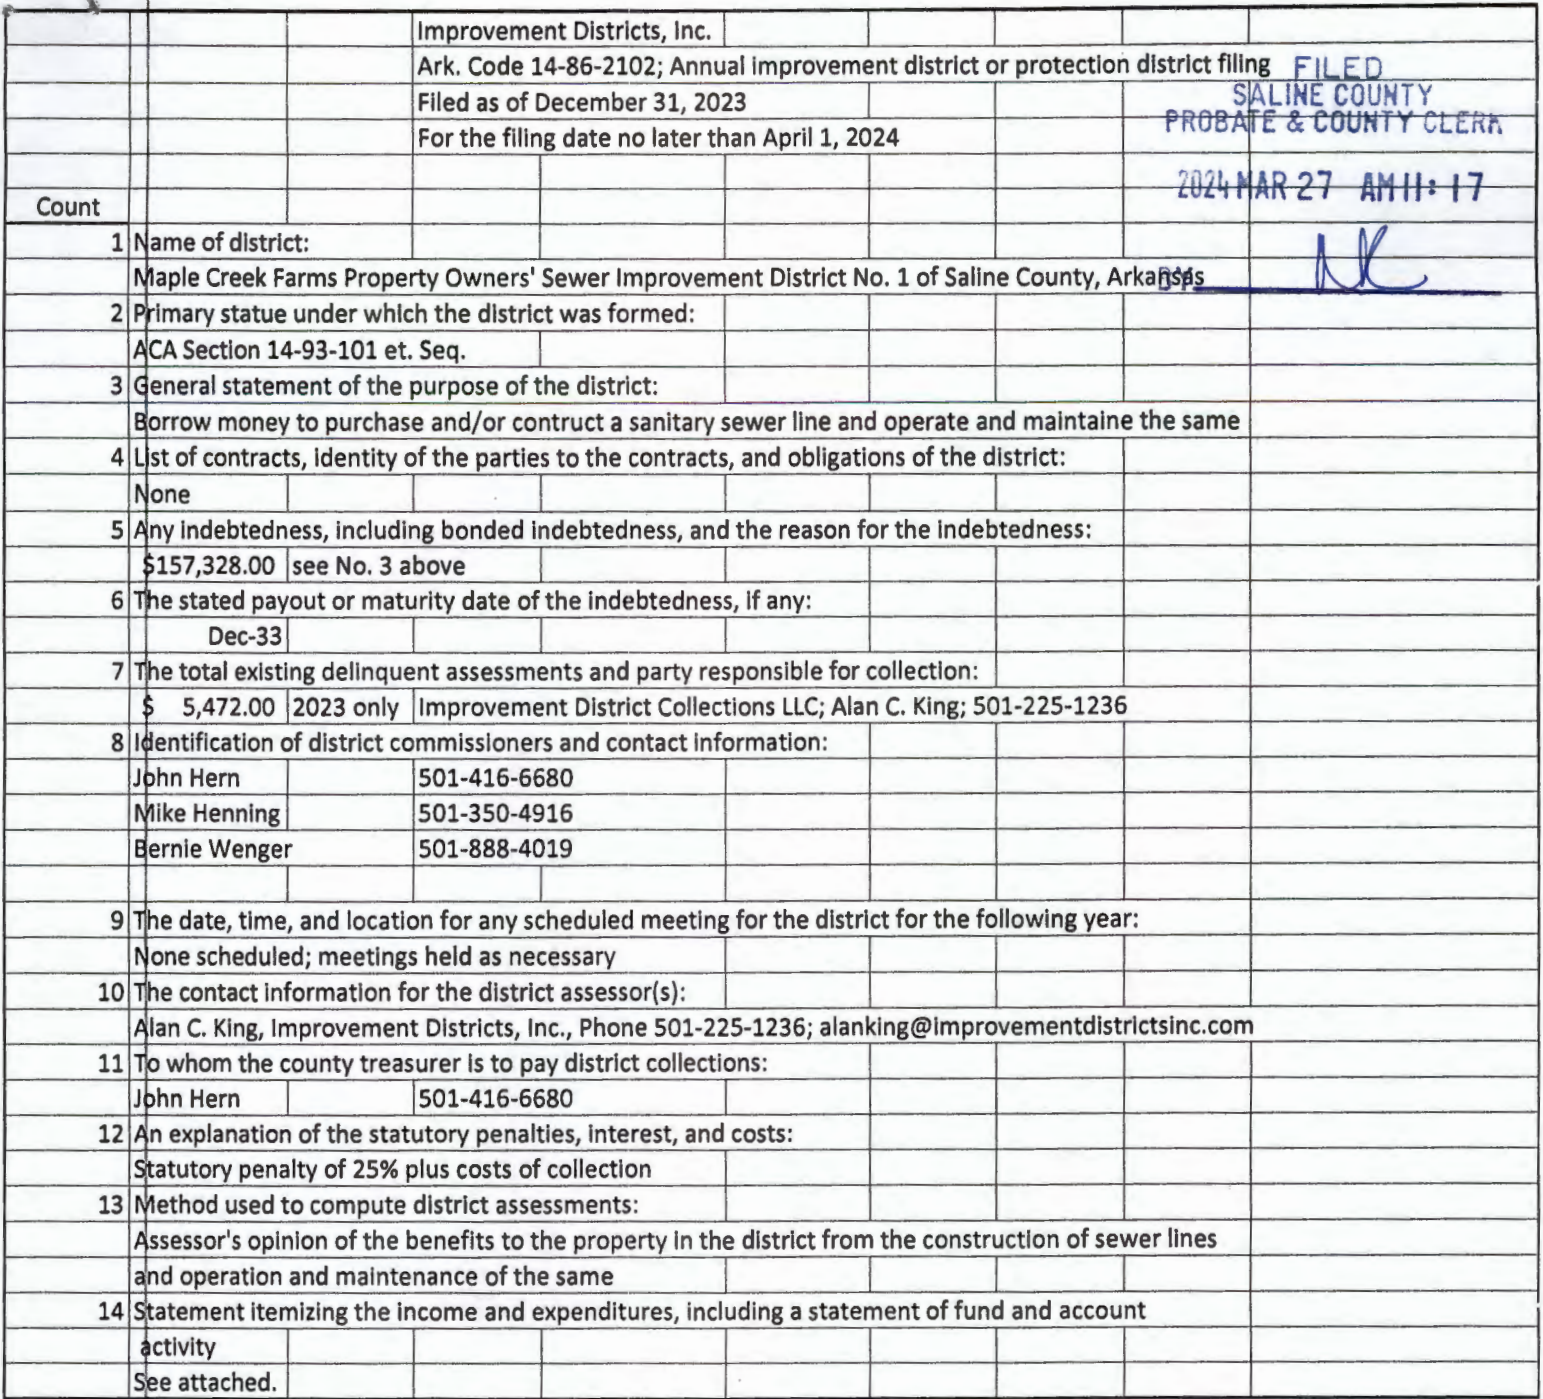 Improvement Districts, Inc.
Ark. Code 14-86-2102; Annual improvement district or protection district filing
FILED
Filed as of December 31, 2023
SALINE COUNTY
PROBATE & COUNTY CLERK
For the filing date no later than April 1, 2024
2024 MAR 27 AM 11: 17
Count
1 Name of district:
Maple Creek Farms Property Owners' Sewer Improvement District No. 1 of Saline County, Arkansas
BY
2 Primary statue under which the district was formed:
ACA Section 14-93-101 et. Seq.
3 General statement of the purpose of the district:
Borrow money to purchase and/or contruct a sanitary sewer line and operate and maintaine the same
4 List of contracts, identity of the parties to the contracts, and obligations of the district:
None
5 Any indebtedness, including bonded indebtedness, and the reason for the indebtedness:
$157,328.00 see No. 3 above
6 The stated payout or maturity date of the indebtedness, if any:
Dec-33
7 The total existing delinquent assessments and party responsible for collection:
$ 5,472.00 2023 only Improvement District Collections LLC; Alan C. King; 501-225-1236
8 Identification of district commissioners and contact information:
John Hern 501-416-6680
Mike Henning 501-350-4916
Bernie Wenger 501-888-4019
9 The date, time, and location for any scheduled meeting for the district for the following year:
None scheduled; meetings held as necessary
10 The contact information for the district assessor(s):
Alan C. King, Improvement Districts, Inc., Phone 501-225-1236; alanking@improvementdistrictsinc.com
11 To whom the county treasurer is to pay district collections:
John Hern 501-416-6680
12 An explanation of the statutory penalties, interest, and costs:
Statutory penalty of 25% plus costs of collection
13 Method used to compute district assessments:
Assessor's opinion of the benefits to the property in the district from the construction of sewer lines
and operation and maintenance of the same
14 Statement itemizing the income and expenditures, including a statement of fund and account
activity
See attached.